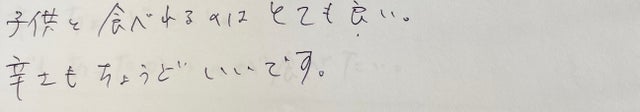 子供と食べれるのはとても良い。
辛さもちょうどいいです。